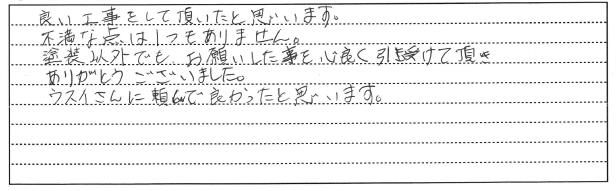 良い工事をして頂いたと思います。
不満な点は1つもありません。
塗装以外でも、お願いした事を心良く引き受けて頂き
ありがとうございました。
ウスイさんに頼んで良かったと思います。